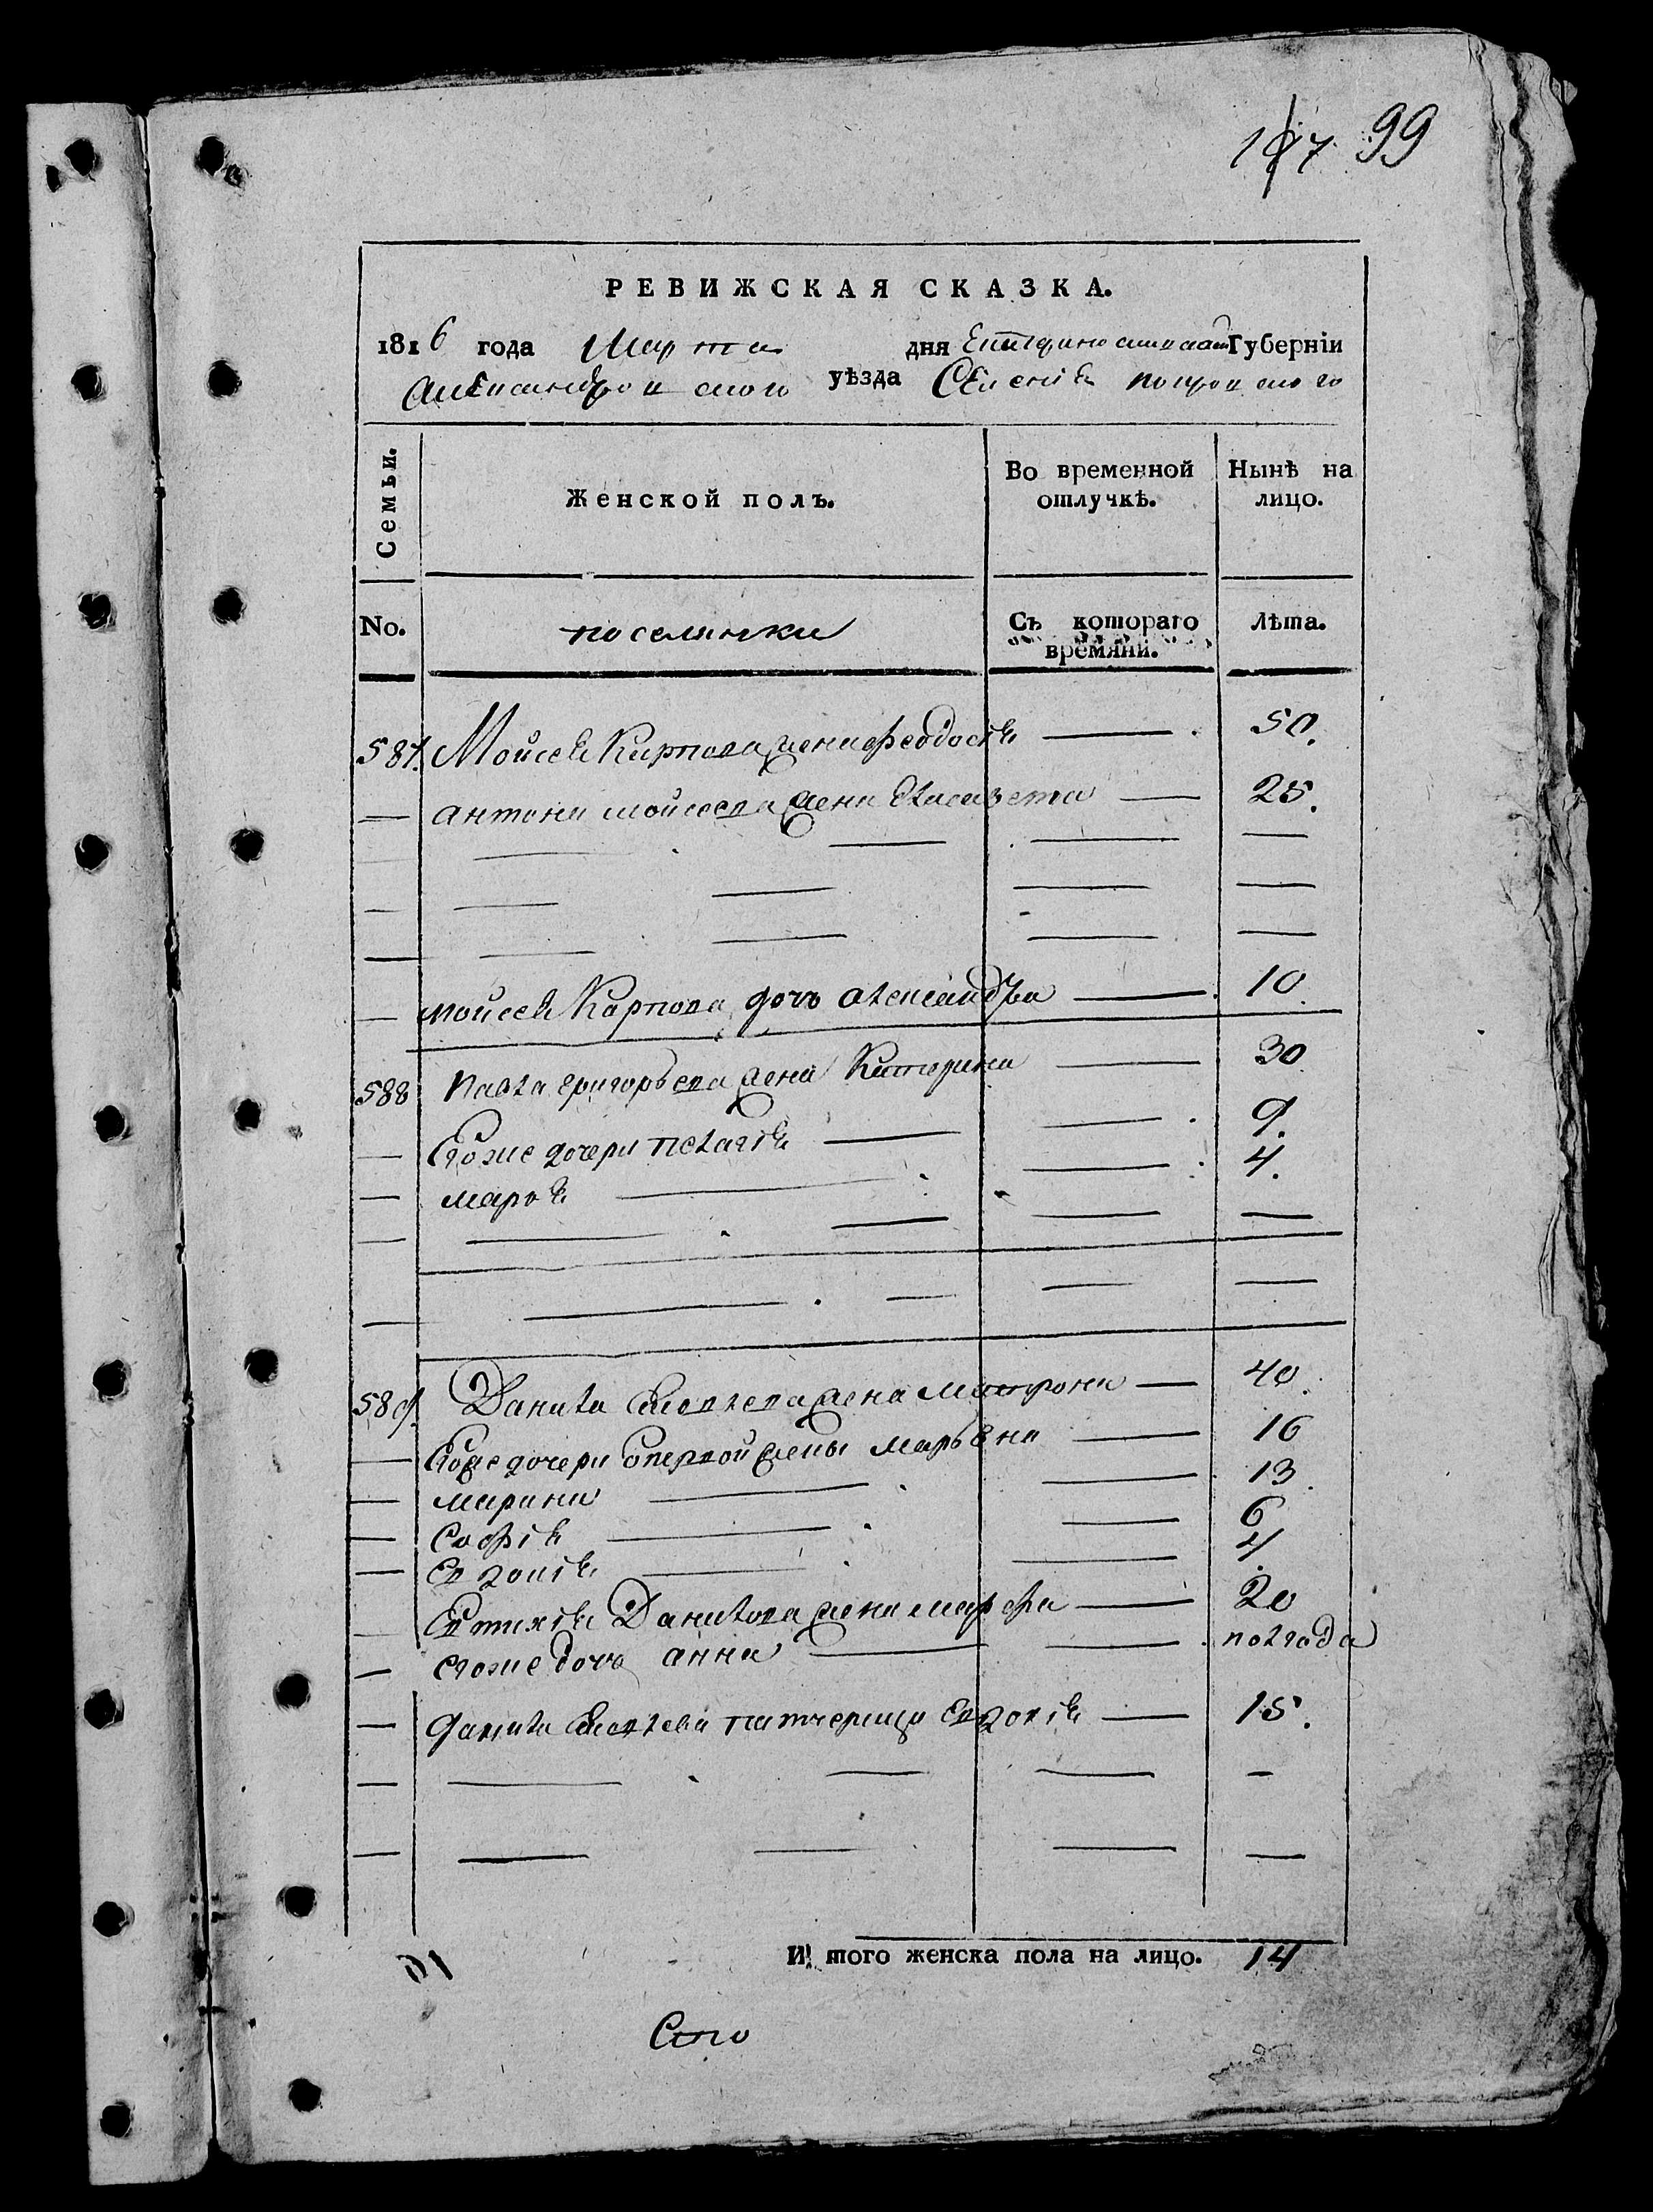 99
РЕВИЖСКАЯ СКАЗКА.
1816 года Марта дня Екатеринославской Губерніи
Александровского уѣзда Селенія Покровского
Семьи. Женской полъ. Во временной отлучкѣ. Нынѣ на лицо.
No. поселянки Съ котораго времяни. Лѣта.
587. Мойсея Карпова жена Феодосія — 50.
— антона мойсеева жена Елисавета — 25.
— мойсея Карпова дочь александра — 10.
588 Павла григорьева жена Катерина — 30
— Егоже дочери пелагія — 9.
— марья — 4.
589. Данила жена Матрона — 40.
— Егоже дочери опервой жены марьяна — 16
— марина — 13.
— Софія — 6
— Евдокія — 4.
— Евтихія Данилова жена марфа — 20
— егоже дочь анна — полгода
— данила патчерица Евдокія — 15.
И того женска пола на лицо. 14
Сто